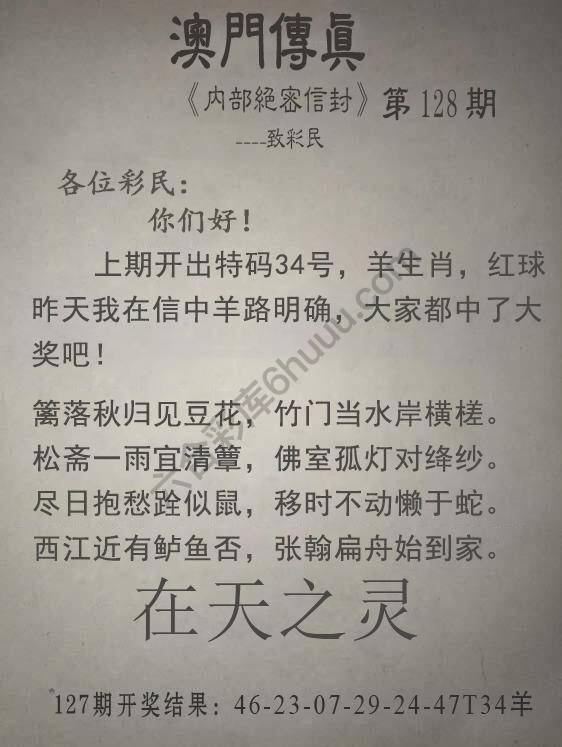 澳門傳真
《内部絕密信封》第128期
----致彩民
各位彩民：
你们好！
上期开出特码34号，羊生肖，红球
昨天我在信中羊路明确，大家都中了大
奖吧！
篱落秋归见豆花，竹门当水岸横槎。
松斋一雨宜清簟，佛室孤灯对绛纱。
尽日抱愁跧似鼠，移时不动懒于蛇。
西江近有鲈鱼否，张翰扁舟始到家。
在天之灵
127期开奖结果：46-23-07-29-24-47T34羊
六合彩库6huuu.com